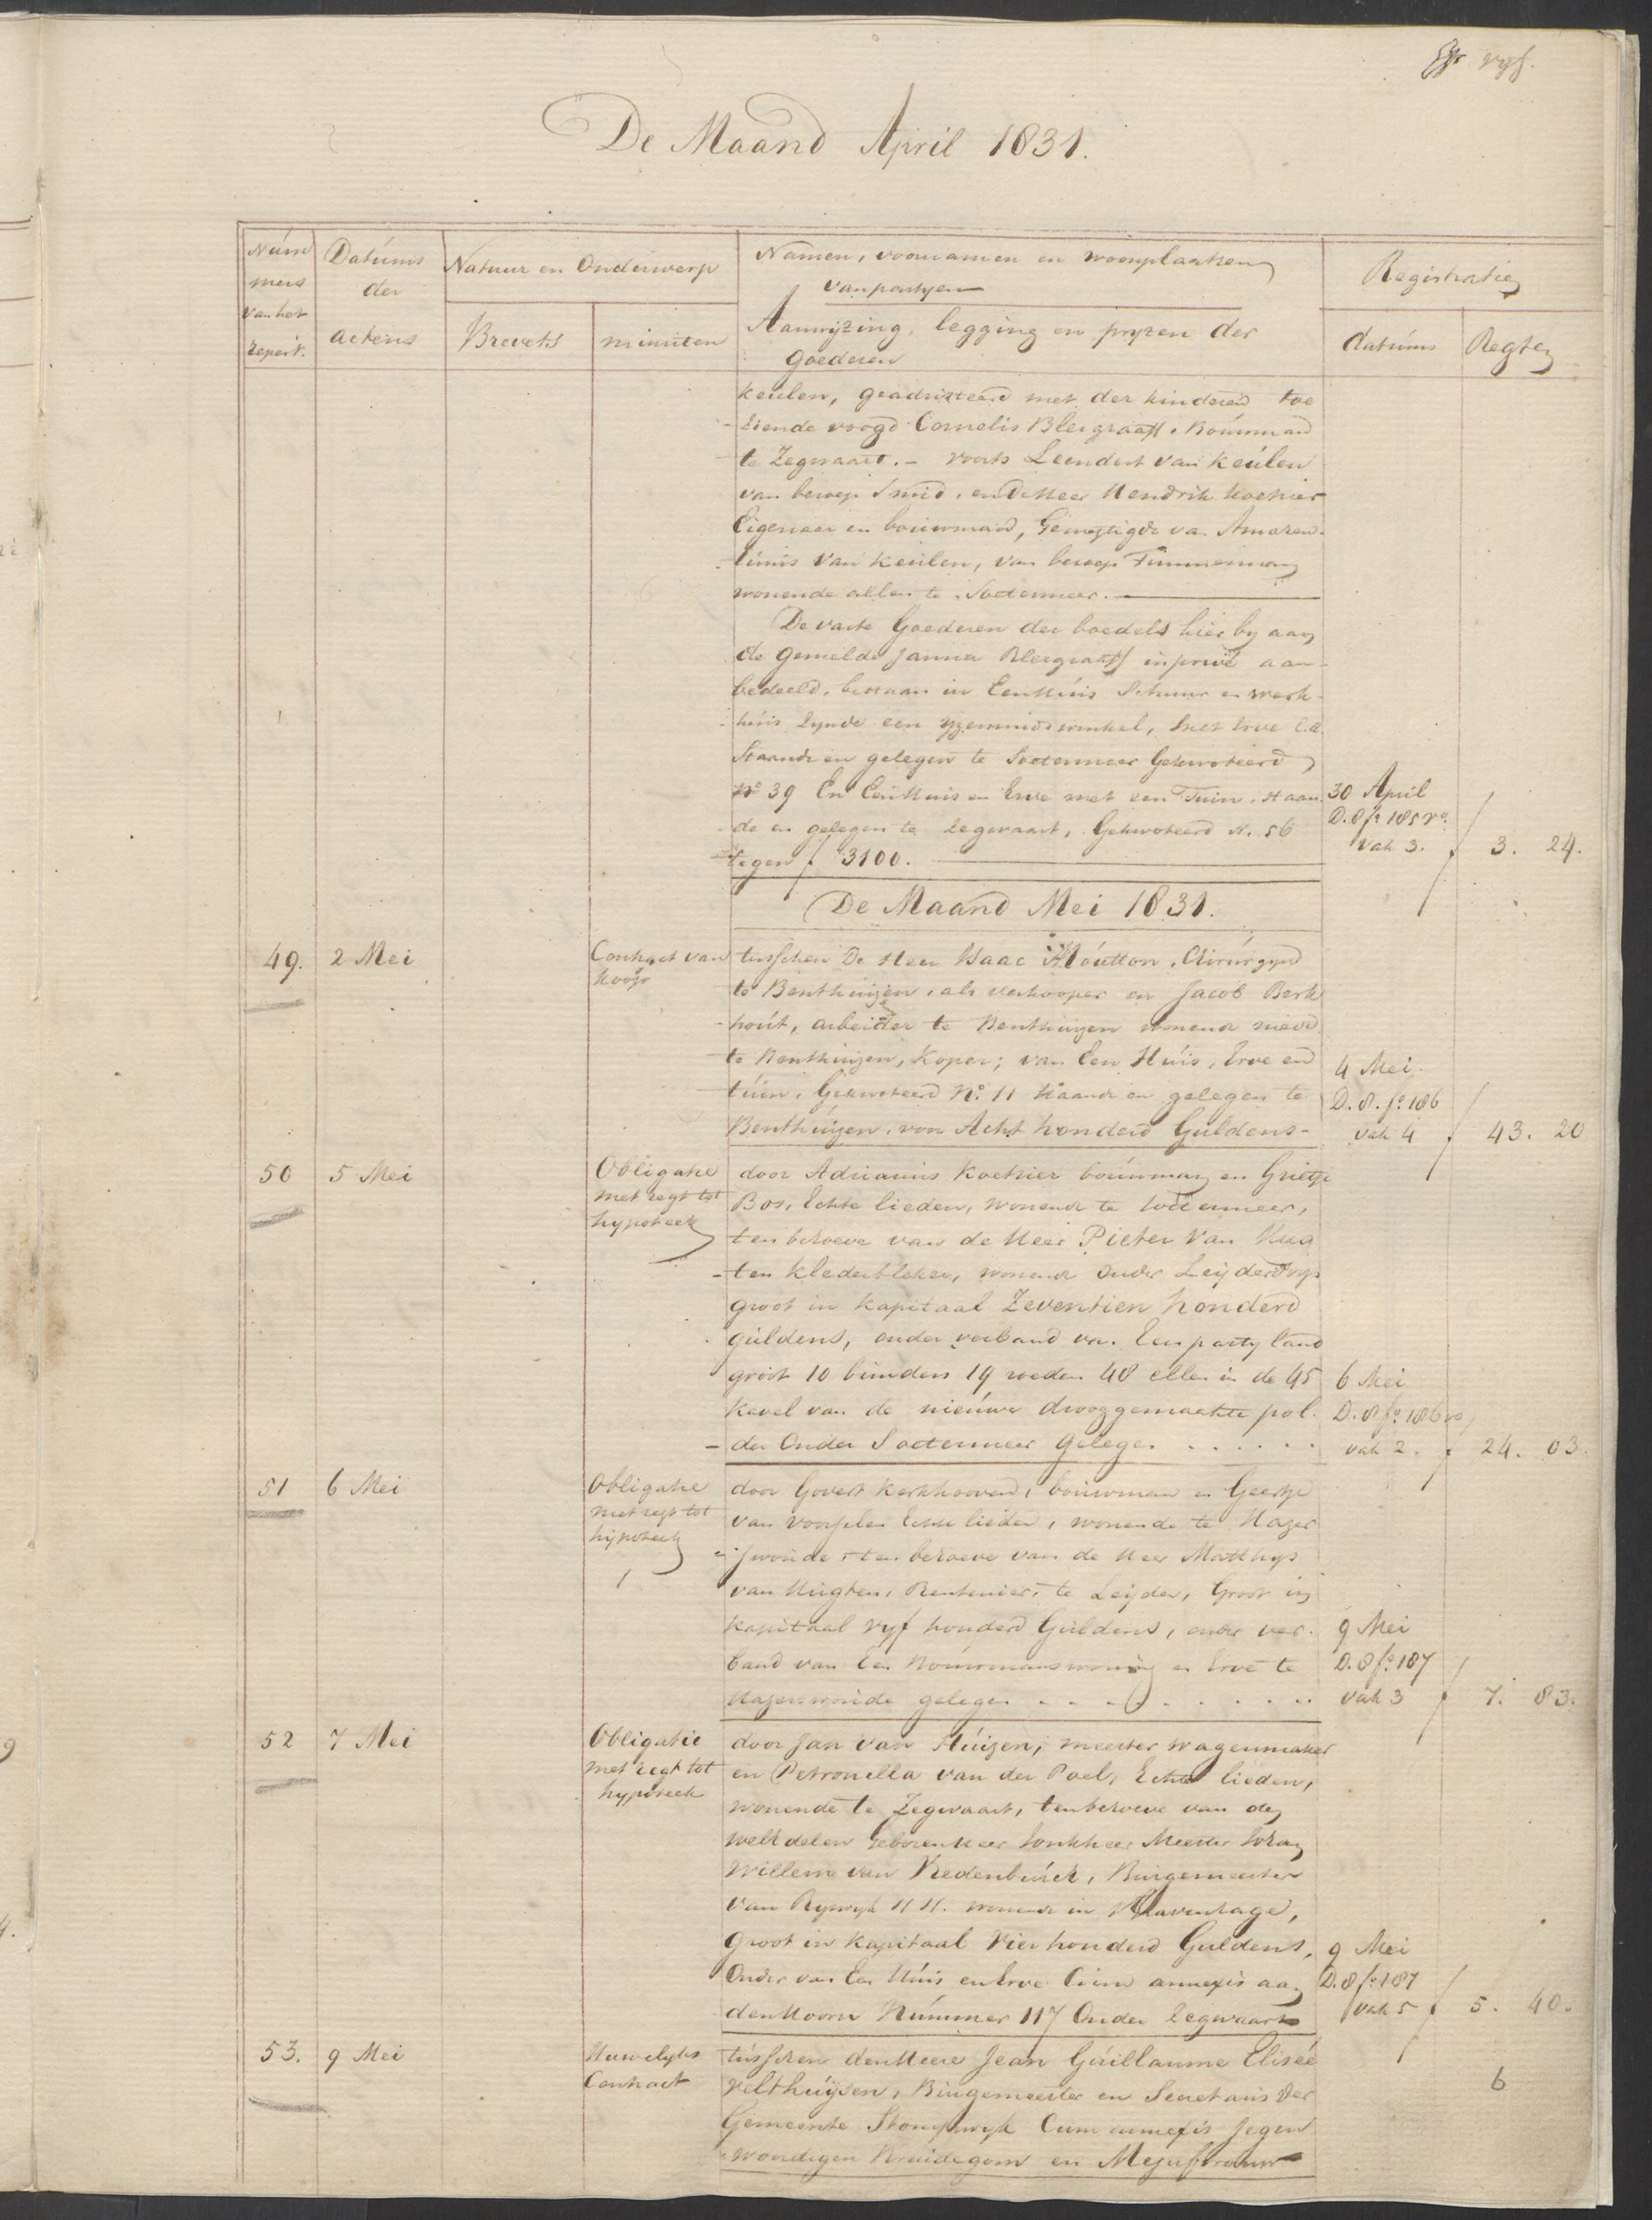 vyf.
De Maand April 1831.
Num
mers
van het
repert.
Datums
der
actens
Natuur en Onderwerp
Brevets
minuten
Namen, voornamen en woonplaatsen
van partyen
Aanwyzing, legging en pryzen der
goederen
Registratie
datums
Regten
keulen, geadsisteerd met der kinderen toe
ziende voogd Cornelis Bleigraaff, Bouwman
te Zegwaart. – voorts Leendert van Keulen
van beroep Smid, en de Heer Hendrik Koetsier
Eigenaar en bouwmand, Gemagtigde van
van Keulen, van beroep Timmerman
wonende allen te Soetermeer.
De vaste Goederen der boedels hier by aan
de gemelde Janna Bleigraaff in privé aan
bedeeld, bestaan in Een Huis Schuur en werk
huis zynde een yzersmids winkel, met Erve C.A.
Staande en gelegen te Soetermeer Gekwoteerd
No 39 En Een Huis en Erve met een Tuin, staan
de en gelegen te Zegwaart, Gekwoteerd N. 56
tegen f 3100.
30 April
D. 8 fo 185 vo.
vak 3. f 3. 24.
De Maand Mei 1831.
49. 2 Mei
Contract van
koop
tusschen De Heer Isaac Moutton, Chirurgyn
te Benthuizen, als verkooper en Jacob Berk
hout, arbeider te Benthuizen wonende mede
te Benthuizen, Koper; van Een Huis, Erve en
tuin, Gekwoteerd No. 11 staande en gelegen te
Benthuizen, voor Acht honderd Guldens
4 Mei.
D. 8. fo 186
vak 4 f 43. 20
50 5 Mei
Obligatie
met regt tot
hypotheek
door Adrianus Koetsier bouwman en Grietje
Bos, Echte lieden, wonende te Soetermeer,
ten behoeve van de Heer Pieter Van Hug
ten klederbleker, wonende onder Leyderdorp
groot in kapitaal Zeventien honderd
guldens, onder verband van Een party land
groot 10 bunders 19 roeden 48 ellen in de 45
kavel van de nieuwe drooggemaakte pol
der Onder Soetermeer Gelegen . . . . . .
6 Mei
D. 8 fo 186 vo
vak 2. f 24. 03.
51 6 Mei
Obligatie
met regt tot
hypotheek
door Govert Kerkhoovend, bouwman en Geertje
van Echte lieden, wonende te Hazer
swoude, ten behoeve van de Heer Matthys
van Hugten, Rentenier, te Leyden, Groot in
kapitaal vyf honderd Guldens, onder ver
band van Een Bouwmanswoning en Erve te
Hazerswoude gelegen . . . . . . . . .
9 Mei
D. 8 fo 187
vak 3 f 7. 83.
52 7 Mei
Obligatie
met regt tot
hypotheek
door Jan van Huizen, meester wagenmaker
en Petronella van der Poel, Echte lieden,
wonende te Zegwaart, ten behoeve van den
weledelen geboren Heer Jonkheer Meester Johan
Willem van Vredenburch, Burgemeester
van Ryswyk H H. wonende in 's Gravenhage,
groot in kapitaal Vier honderd Guldens,
Onder van Een Huis en Erve Cum annexis aan
den Hoorn Nummer 117 Onder Zegwaart
9 Mei
D. 8 fo 187
vak 5 f 5. 40.
53. 9 Mei
Huwelyks
Contract
tusschen den Heere Jean Guillaume Eliseé
Velthuysen, Burgemeester en Secretaris der
Gemeente Stompwyk Cum annexis Jegen
woordigen Bruidegom en Mejufvrouw
6